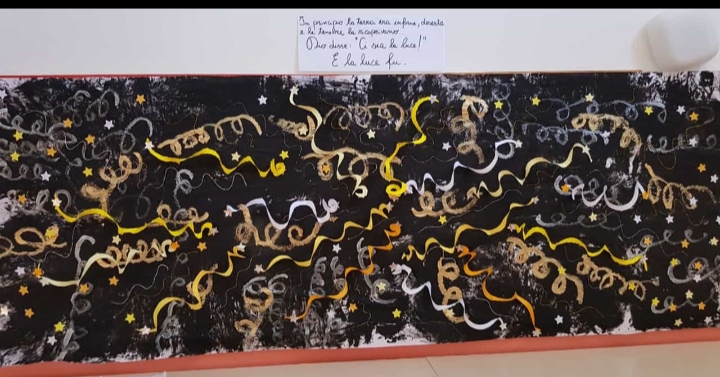 In principio la terra era informe, deserta
e le tenebre la ricoprivano.
Dio disse: "Ci sia la luce!"
E la luce fu.